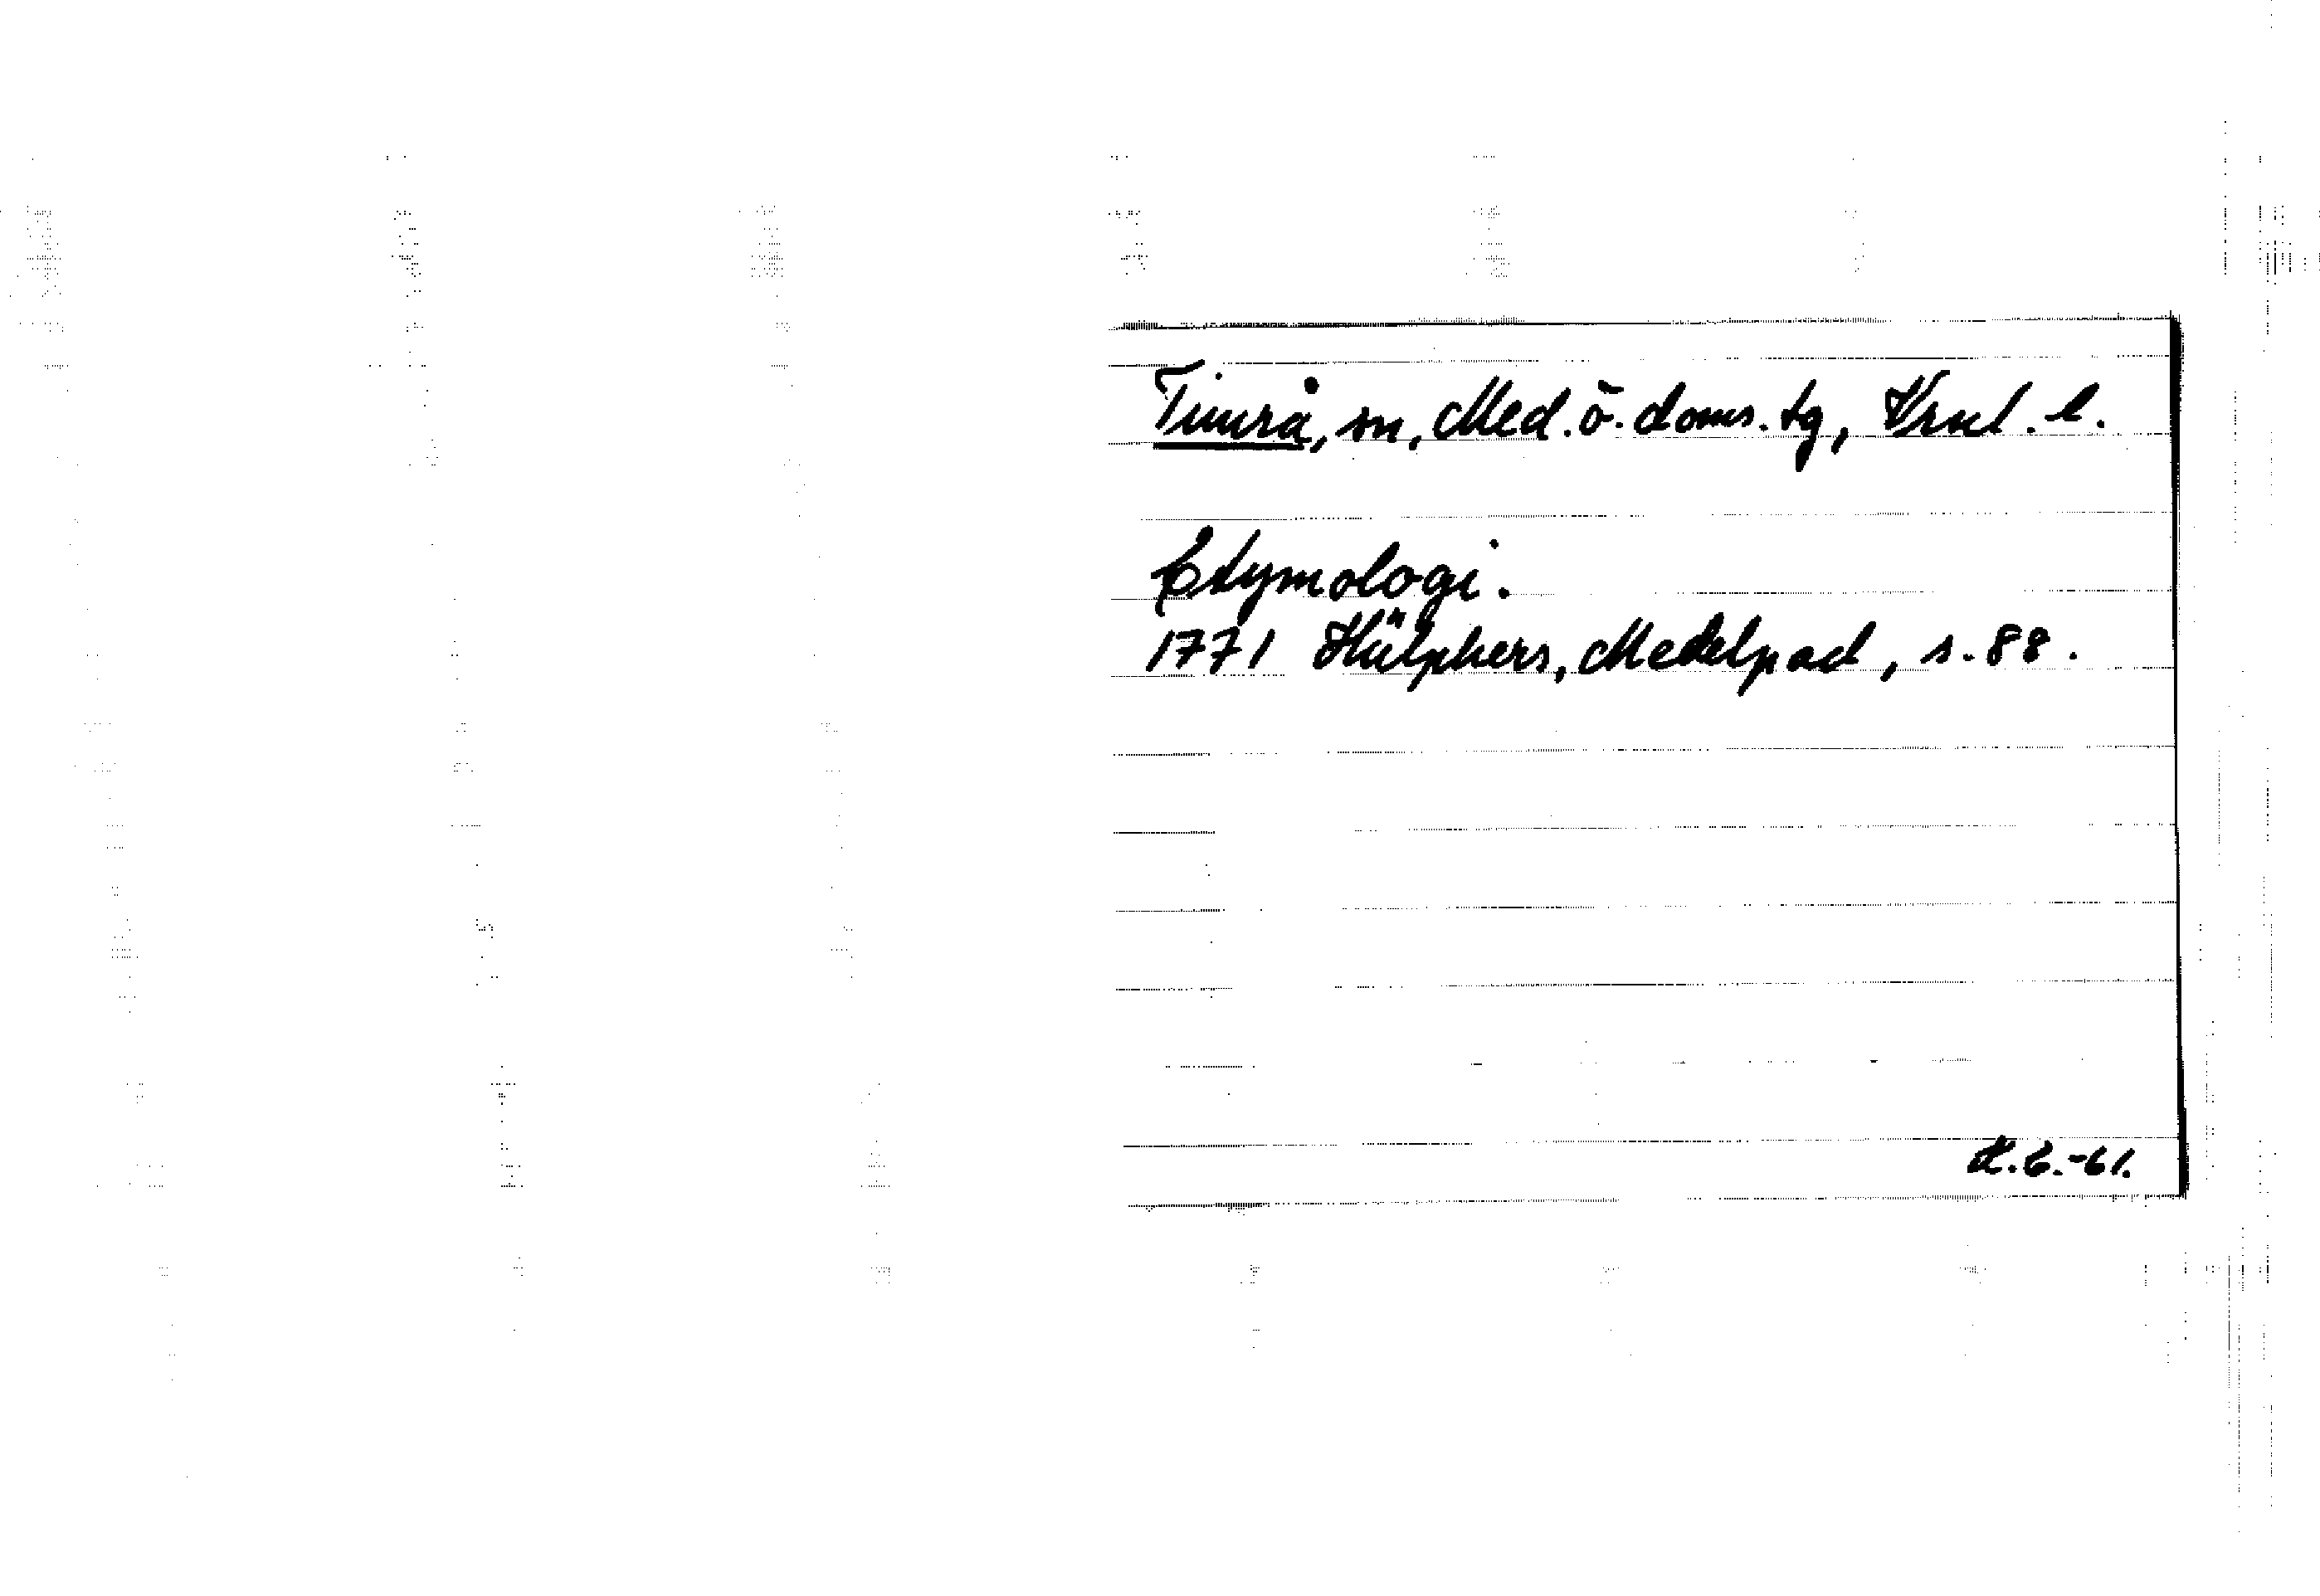 Timrå, sn, Med. ö. doms. tg, Vrnl. l.
Etymologi.
1771 Hülphers, Medelpad, s. 88.
K.E.-61.